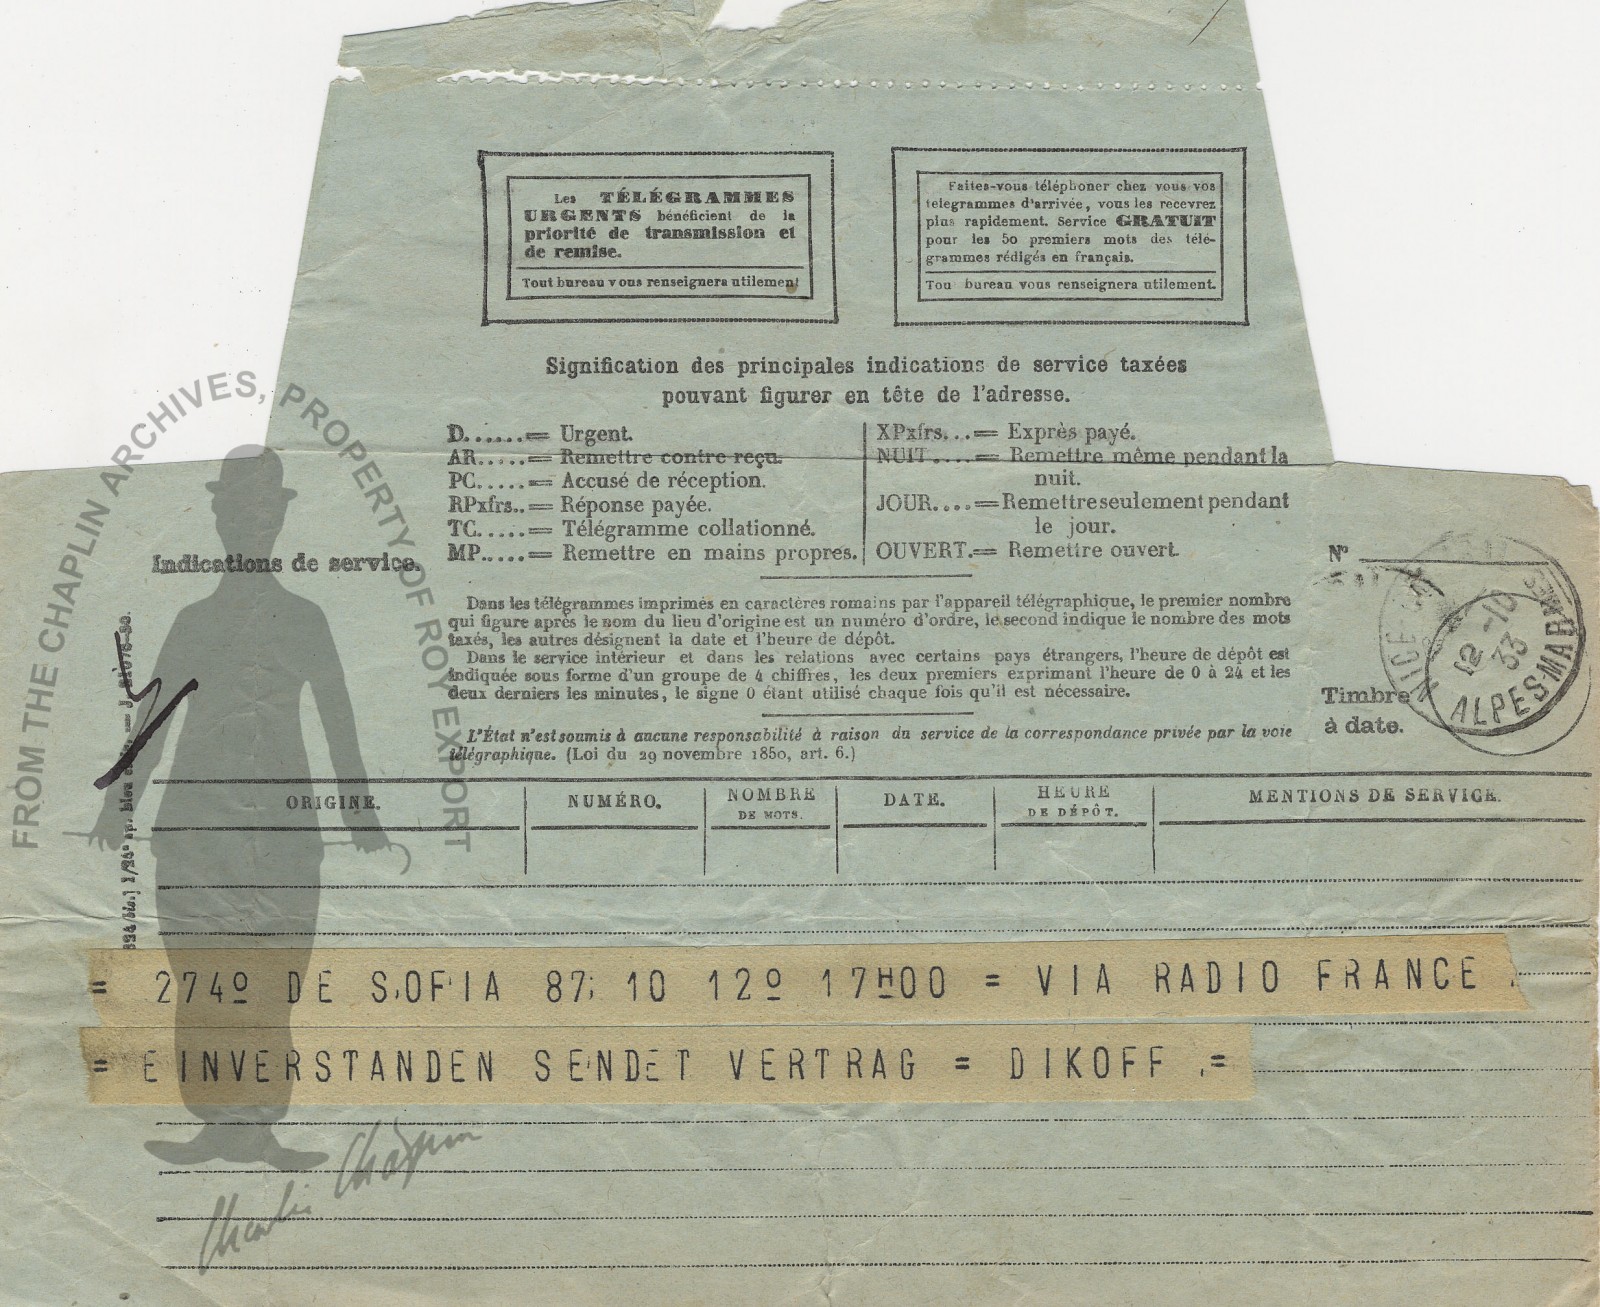 Les TÉLÉGRAMMES
URGENTS bénéficient de la
priorité de transmission et
de remise.
Tout bureau vous renseignera utilement
Faites-vous téléphoner chez vous vos
telegrammes d'arrivée, vous les recevrez
plus rapidement. Service GRATUIT
pour les 50 premiers mots des télé-
grammes rédigés en français.
Tou bureau vous renseignera utilement.
Signification des principales indications de service taxées
pouvant figurer en tête de l'adresse.
D......= Urgent.
AR.....= Remettre contre reçu.
PC.....= Accusé de réception.
RPxfrs..= Réponse payée.
TC.....= Télégramme collationné.
MP.....= Remettre en mains propres.
XPxfrs...= Exprès payé.
NUIT....= Remettre même pendant la
nuit.
JOUR....= Remettre seulement pendant
le jour.
OUVERT.= Remettre ouvert.
Indications de service.
N°
Dans les télégrammes imprimés en caractères romains par l'appareil télégraphique, le premier nombre
qui figure après le nom du lieu d'origine est un numéro d'ordre, le second indique le nombre des mots
taxés, les autres désignent la date et l'heure de dépôt.
Dans le service intérieur et dans les relations avec certains pays étrangers, l'heure de dépôt est
indiquée sous forme d'un groupe de 4 chiffres, les deux premiers exprimant l'heure de 0 à 24 et les
deux derniers les minutes, le signe 0 étant utilisé chaque fois qu'il est nécessaire.
L'État n'est soumis à aucune responsabilité à raison du service de la correspondance privée par la voie
télégraphique. (Loi du 29 novembre 1850, art. 6.)
Timbre
à date.
NICE
12-10
33
ALPES-MARMES
ORIGINE.
NUMÉRO.
NOMBRE
DE MOTS.
DATE.
HEURE
DE DÉPÔT.
MENTIONS DE SERVICE.
= 274º DE SOFIA 87 10 12º 17H00 = VIA RADIO FRANCE
= EINVERSTANDEN SENDET VERTRAG = DIKOFF .=
FROM THE CHAPLIN ARCHIVES, PROPERTY OF ROY EXPORT
Charlie Chaplin